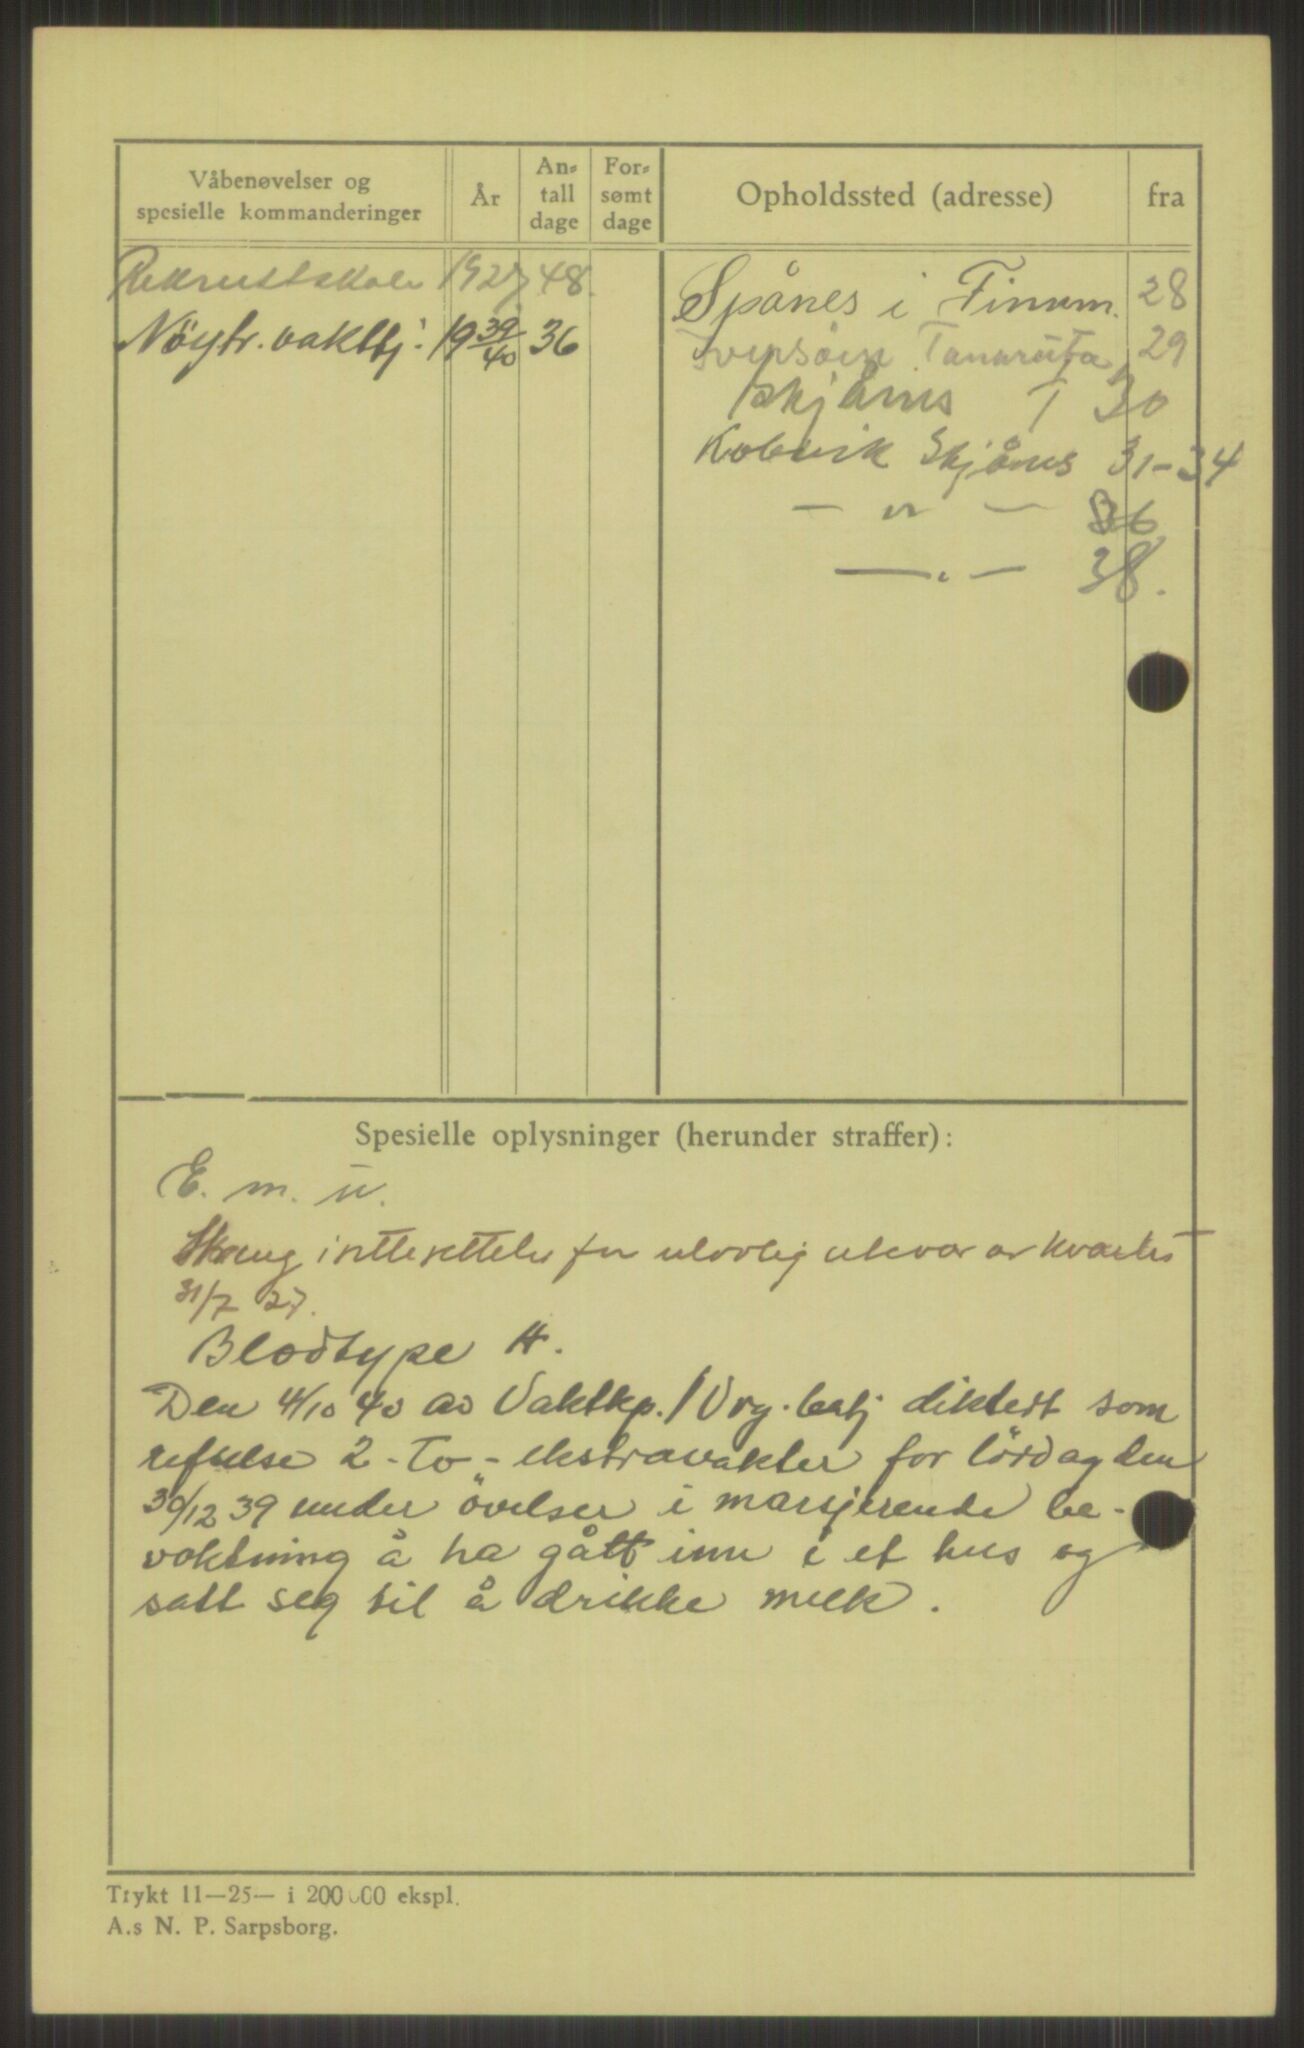 Våbenøvelser og
spesielle kommanderinger
År
An-
tall
dage
For-
sømt
dage
Opholdssted (adresse)
fra
Rekruttskole 1927 48.
Nøytr. vakttj. 19 39/40 36
Spånes i Finnm. 28
29
Skjånes T 30
Kobvik Skjånes 31-34
- " - 36
- " - 38.
Spesielle oplysninger (herunder straffer):
E. m. u.
Streng irettesettelse for ulovlig av kvarter
31/7 27.
Blodtype A.
Den 4/10 40 av Vaktkp./Vrg. batj diktert som
refselse 2 - To - ekstravakter for lördag den
30/12 39 under övelser i marsjerende be-
voktning å ha gått inn i et hus og
satt seg til å drikke melk.
Trykt 11—25— i 200 000 ekspl.
A.s N. P. Sarpsborg.